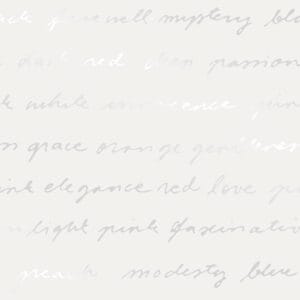 black farewell mystery blu
dark red deep passion
k white innocence pin
grace orange gentleness
ink elegance red love
light pink fascinati
peach modesty blue